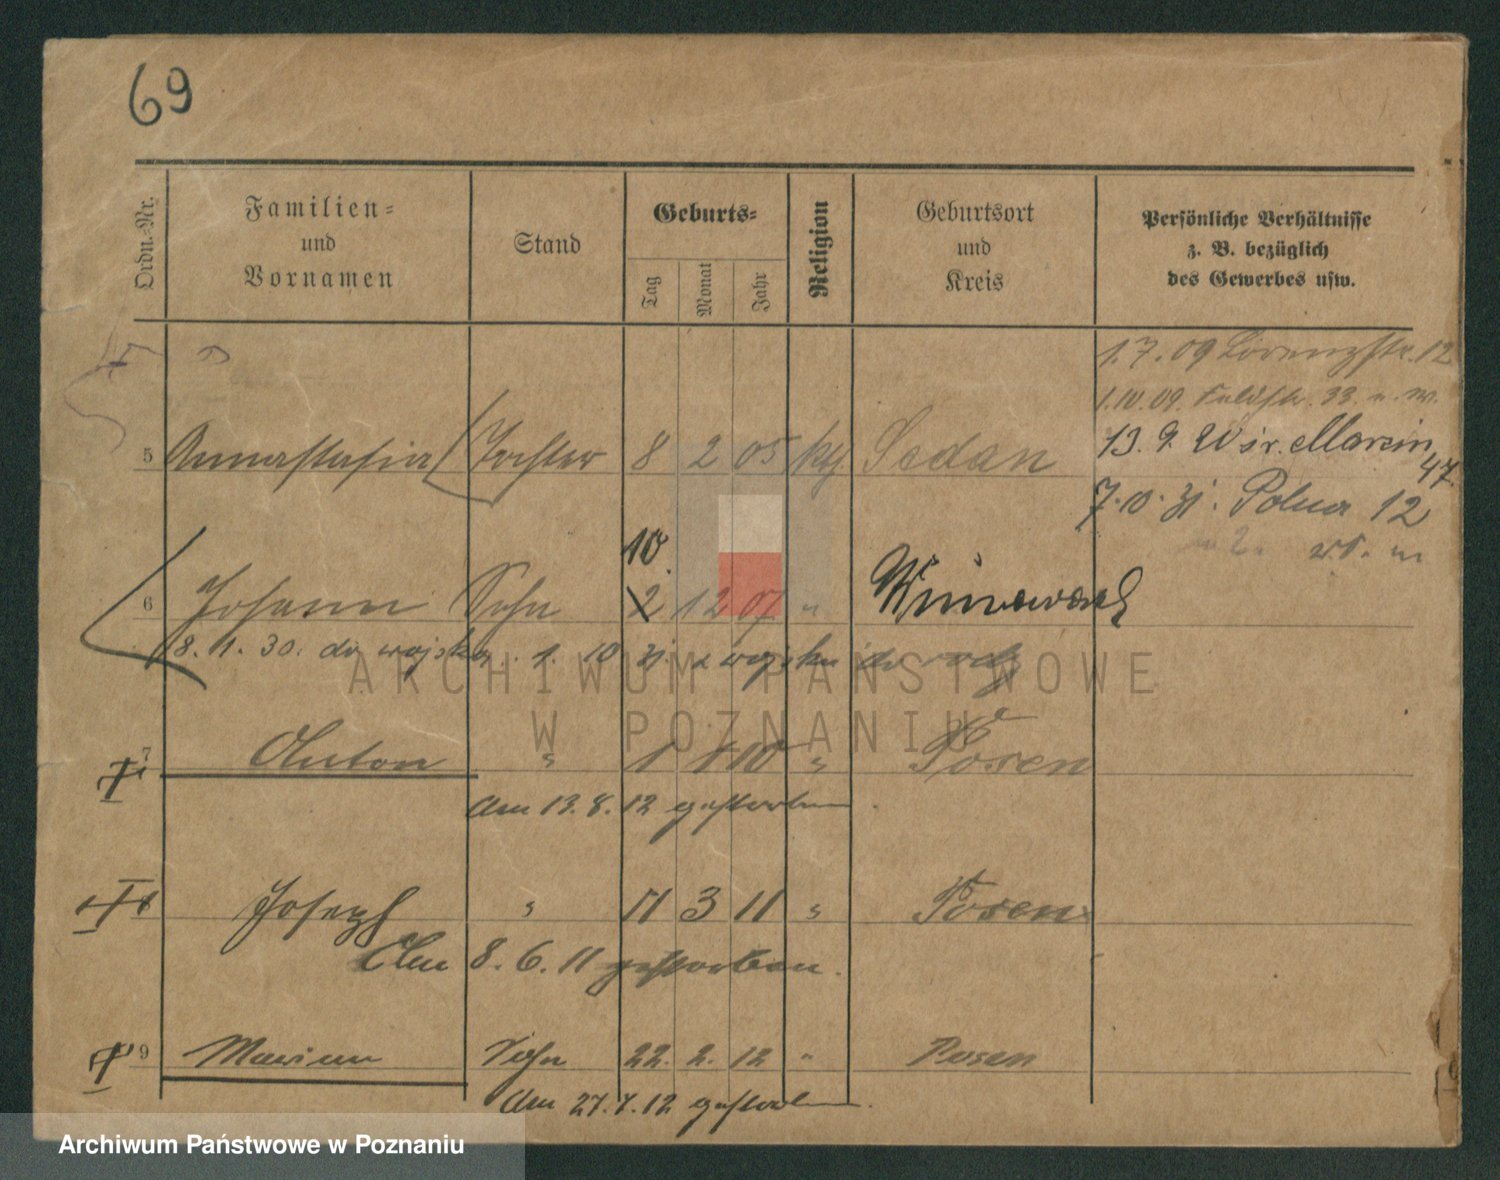 69
Ordn.-Nr.
Familien-
und
Vornamen
Stand
Geburts-
Tag
Monat
Jahr
Religion
Geburtsort
und
Kreis
Persönliche Verhältnisse
z. B. bezüglich
des Gewerbes usw.
1.7.09 Lorenzstr. 12
1.10.09. Feldstr. 33.
13. 9. Marcin 47.
7.10.31. Polna 12
5 Annastasia Tochter 8 2 05 kth Sedan
10.
6 Johann Sohn 2 12 07 "
8. 1. 30. do wojska. 1. 10 31. z wojska
ARCHIWUM PAŃSTWOWE
W POZNANIU
7 Anton " 1 1 10 " Posen
Am 13. 8. 12 gestorben.
Joseph " 11 3 11 " Posen
Am 8. 6. 11 gestorben.
9 Marian Sohn 22. 2. 12 " Posen
Am 27. 7. 12 gestorben.
Archiwum Państwowe w Poznaniu